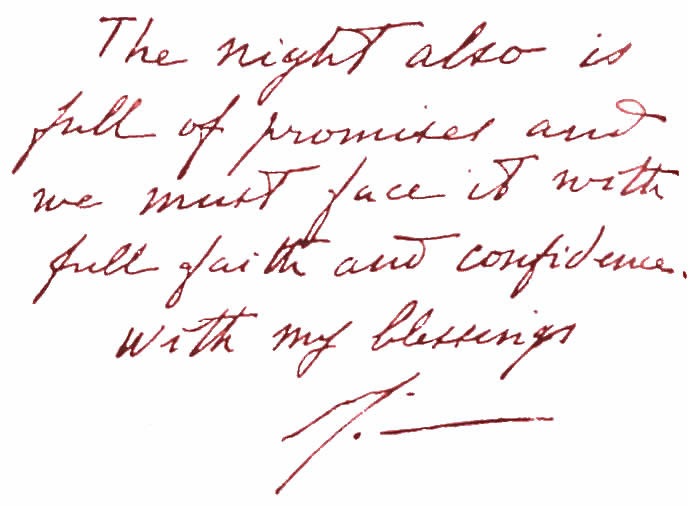 The night also is
full of promises and
we must face it with
full faith and confidence.
with my blessings